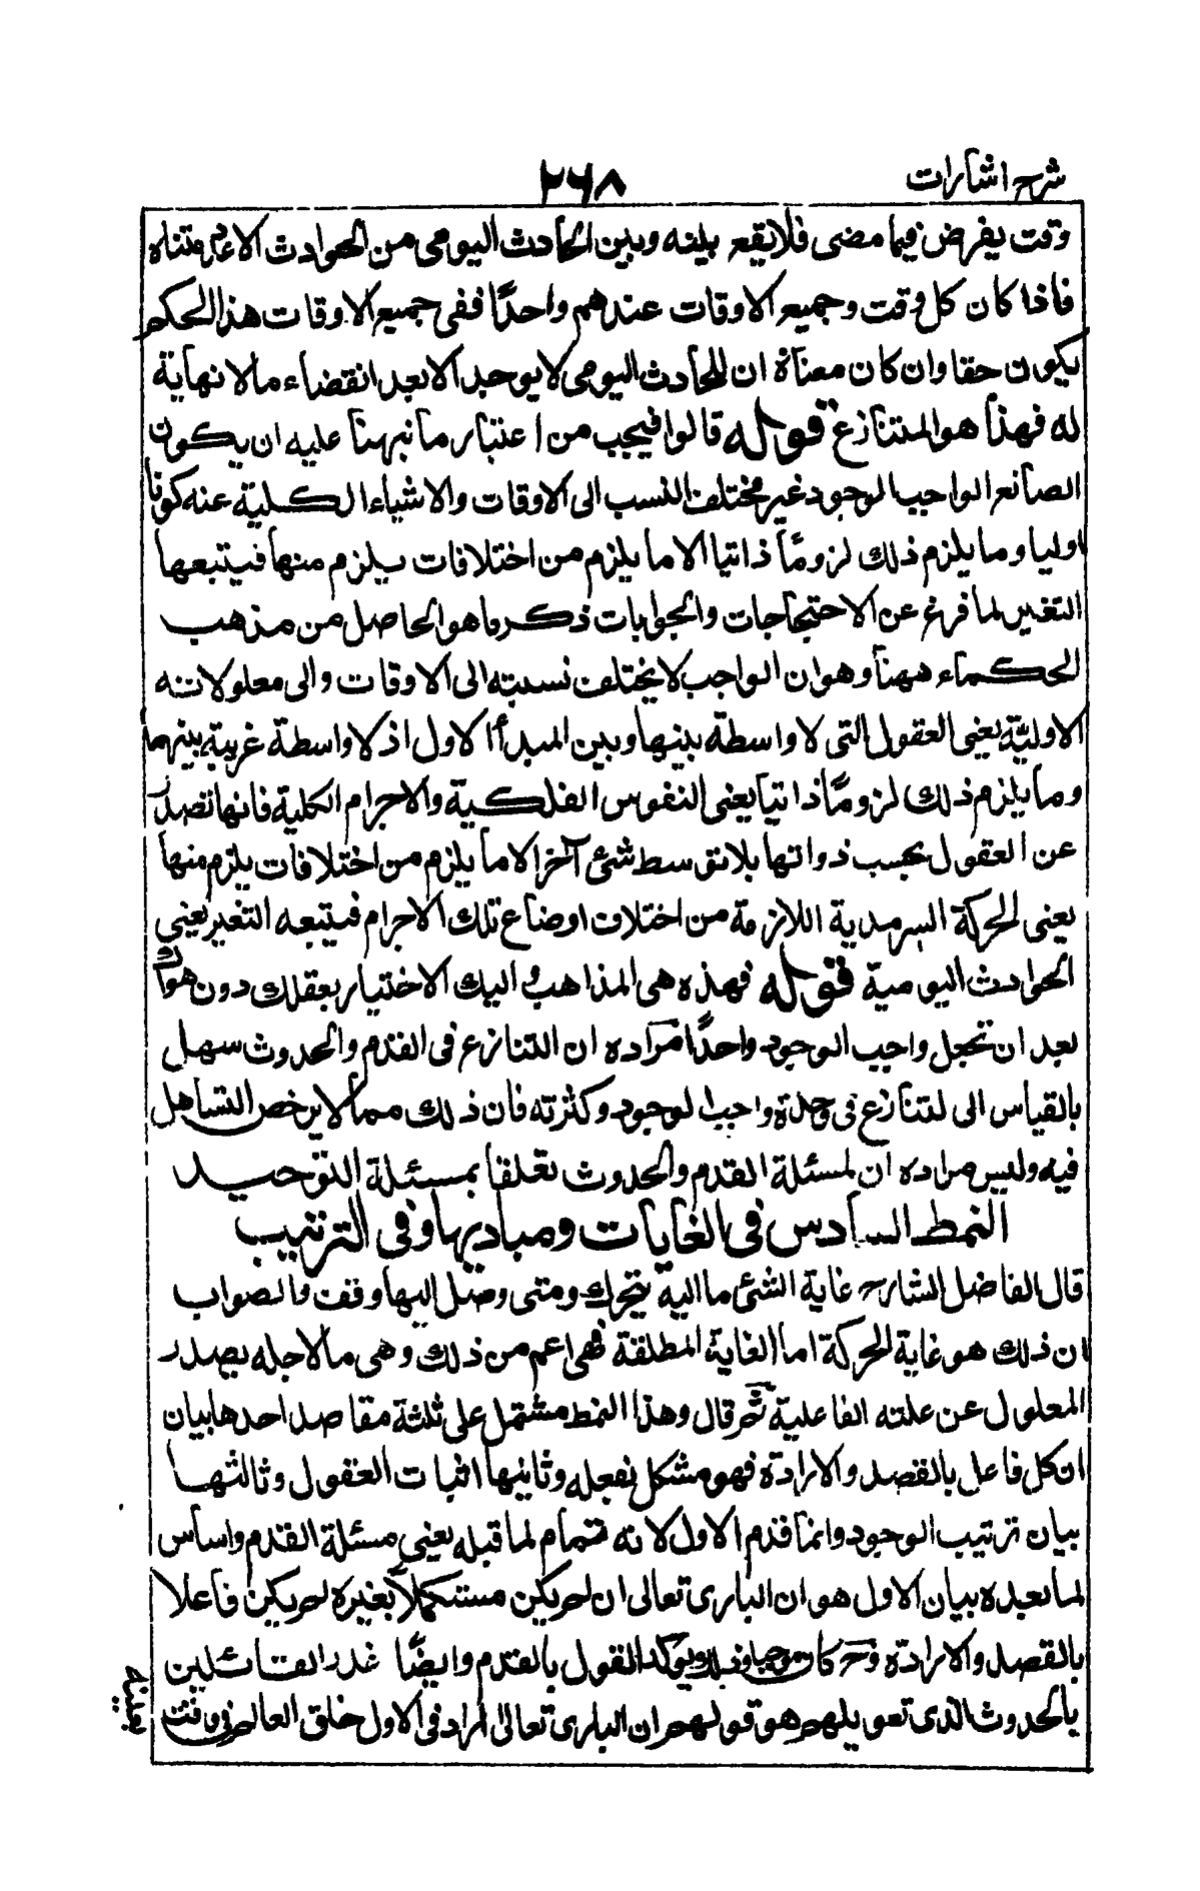 شرح اشارات
٢٦٨
وقت يفرض فيما مضى فلا يقع بينه وبين الحادث اليومى من الحوادث الا عدد متناه
فاذا كان كل وقت وجميع الاوقات عندهم واحدًا ففى جميع الاوقات هذا الحكم
يكون حقا وان كان معناه ان الحادث اليومى لا يوجد الا بعد انقضاء مالا نهاية
له فهذا هو المتنازع قوله قالوا فيجب من اعتبار ما نبهنا عليه ان يكون
الصانع الواجب الوجود غير مختلف النسب الى الاوقات والاشياء الكلية عنه كونا
اوليا وما يلزم ذلك لزومًا ذاتيا الا ما يلزم من اختلافات يلزم منها فيتبعها
التغير لما فرغ عن الاحتجاجات والجوابات ذكر ما هو الحاصل من مذهب
الحكماء ههنا وهو ان الواجب لا يختلف نسبته الى الاوقات والى معلولاته
الاوليّة يعنى العقول التى لا واسطة بينها وبين المبدأ الاول اذ لا واسطة غريبة بينهما
وما يلزم ذلك لزومًا ذاتيا يعنى النفوس الفلكية والاجرام الكلية فانها تصدر
عن العقول بحسب ذواتها بلا توسط شئ آخر الا ما يلزم من اختلافات يلزم منها
يعنى الحركة السرمدية اللازمة من اختلاف اوضاع تلك الاجرام فيتبعه التغير يعنى
الحوادث اليومية قوله فهذه هى المذاهب و اليك الاختيار بعقلك دون هواك
بعد ان تجعل واجب الوجود واحدًا مراده ان التنازع فى القدم والحدوث سهل
بالقياس الى التنازع فى وحدة واجب الوجود وكثرته فان ذلك مما لا يرخص التساهل
فيه وليس مراده ان لمسئلة القدم والحدوث تعلقا بمسئلة التوحيد
النمط السادس فى الغايات ومباديها وفى الترتيب
قال الفاضل الشارح غاية الشئ ما اليه يتحرك ومتى وصل اليها وقف والصواب
ان ذلك هو غاية الحركة اما الغاية المطلقة فهى اعم من ذلك وهى ما لاجله يصدر
المعلول عن علته الفاعلية ثم قال وهذا النمط مشتمل على ثلثة مقاصد احدها بيان
ان كل فاعل بالقصد والارادة فهو مشكل بفعله وثانيها اثبات العقول وثالثها
بيان ترتيب الوجود وانما قدم الاول لانه تمام لما قبله يعنى مسئلة القدم واساس
لما بعده بيان الاول هو ان البارى تعالى ان لم يكن مستكملا بغيره لم يكن فاعلا
بالقصد والارادة وح كان موجبا وذلك يؤكد القول بالقدم وايضًا عذر القائلين
بالحدوث الذى تعويلهم هو قولهم ان البارى تعالى اراد فى الاول خلق العالم فى وقت
بعينه